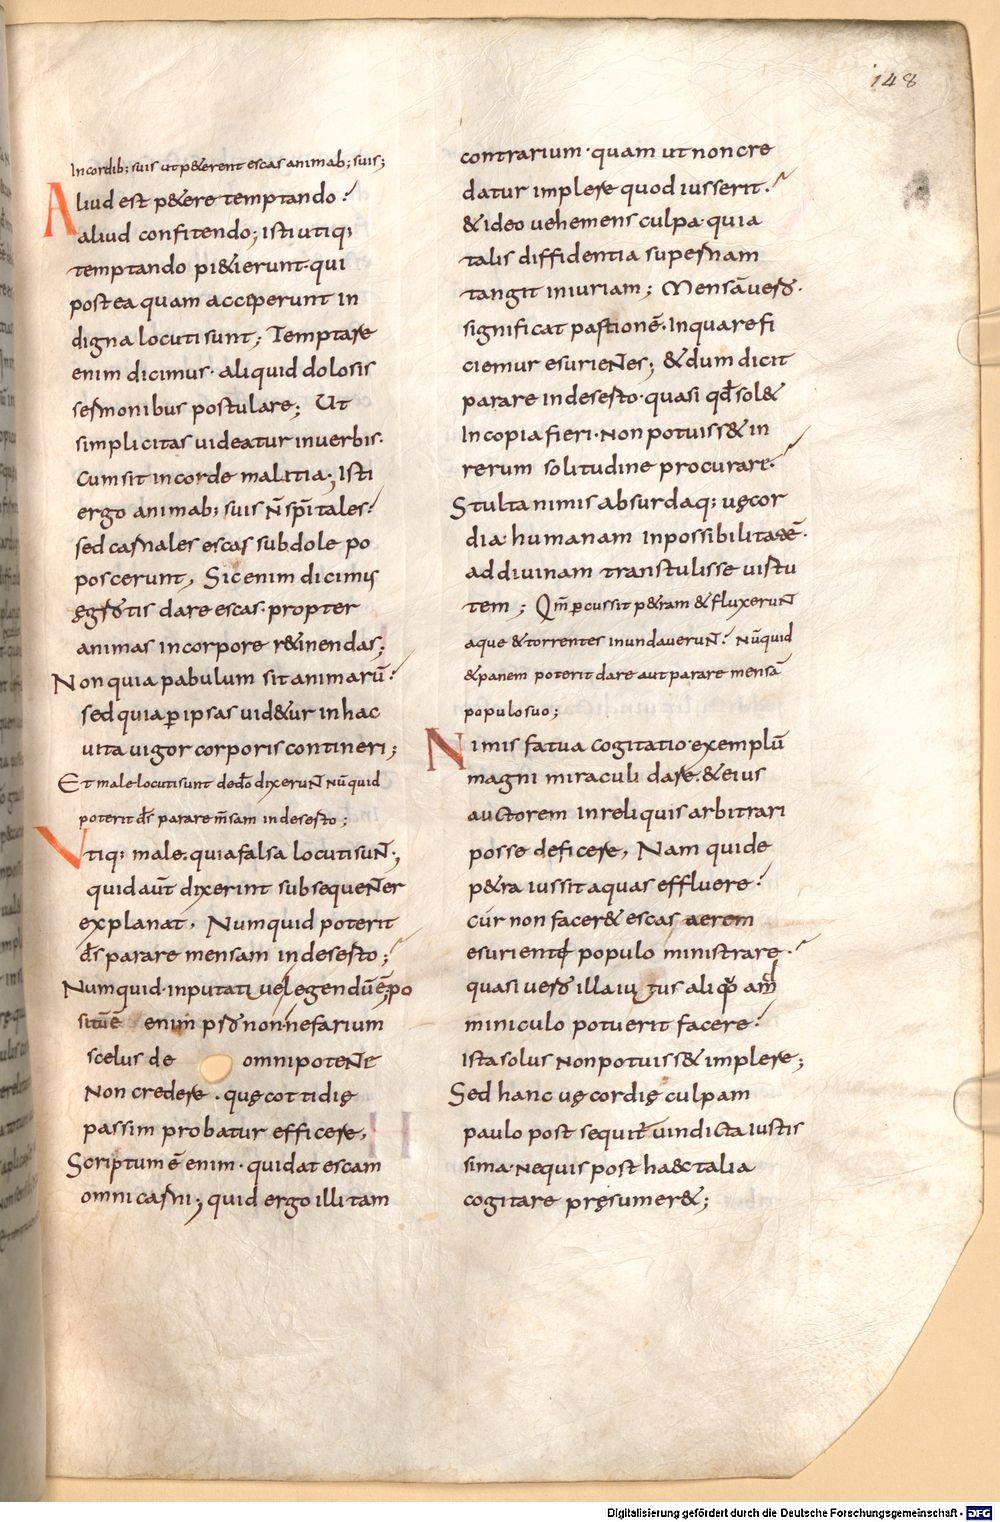 148
In cordib; suis ut p&erent escas animab; suis;
Aliud est p&ere temptando?
aliud confitendo; isti utiq;
temptando pi&ierunt· qui
postea quam acceperunt in
digna locuti sunt; Temptare
enim dicimus· aliquid dolosis
sermonibus postulare; Ut
simplicitas uideatur in uerbis·
Cum sit in corde malitia; isti
ergo animab; suis n̄ sp̄itales?
sed carnales escas subdole po
poscerunt, Sic enim dicimus
ęgrotis dare escas· propter
animas in corpore r&inendas;
Non quia pabulum sit animarū?
sed quia ꝑ ipsas uid&ur in hac
uita uigor corporis contineri;
Et male locuti sunt de dō dixerunt nūquid
poterit d̄s parare m̄sam in deserto;
Vtiq; male. quia falsa locuti sunt;
quid aūt dixerint subsequenter
explanat, Numquid poterit
d̄s parare mensam in deserto;
Numquid· in putati uel egendū ē, po
situ ē enim pro non nefarium
scelus de omnipotente
Non credere· quę cottidię
passim probatur efficere,
Scriptum ē enim· qui dat escam
omni carni; quid ergo illi tam
contrarium· quam ut non cre
datur implere quod iusserit·
& ideo uehemens culpa· quia
talis diffidentia supernam
tangit iniuriam; Mensā uero·
significat pastionē· In qua refi
ciemur esurientes; & dum dicit
parare in deserto· quasi qd̄ sol&
In copia fieri· Non potuiss& in
rerum solitudine procurare·
Stulta nimis absurdaq; uęcor
dia· humanam inpossibilitatē·
ad diuinam transtulisse uirtu
tem; Qm̄ ꝑcussit p&ram & fluxerunt
aque & torrentes inundauerunt? Nūquid
& panem poterit dare aut parare mensā
populo suo;
Nimis fatua cogitatio· exemplū
magni miraculi dare· & eius
auctorem in reliquis arbitrari
posse deficere, Nam qui de
p&ra iussit aquas effluere?
cur non facer& escas aerem
esurienti populo ministrare·
quasi uero illa iu tus aliqd̄ am
miniculo potuerit facere?
Ista solus non potuiss& implere;
Sed hanc uęcordię culpam
paulo post sequit̄ uindicta iustis
sima· Nequis post haec talia
cogitare pręsumer&;
Digitalisierung gefördert durch die Deutsche Forschungsgemeinschaft - DFG